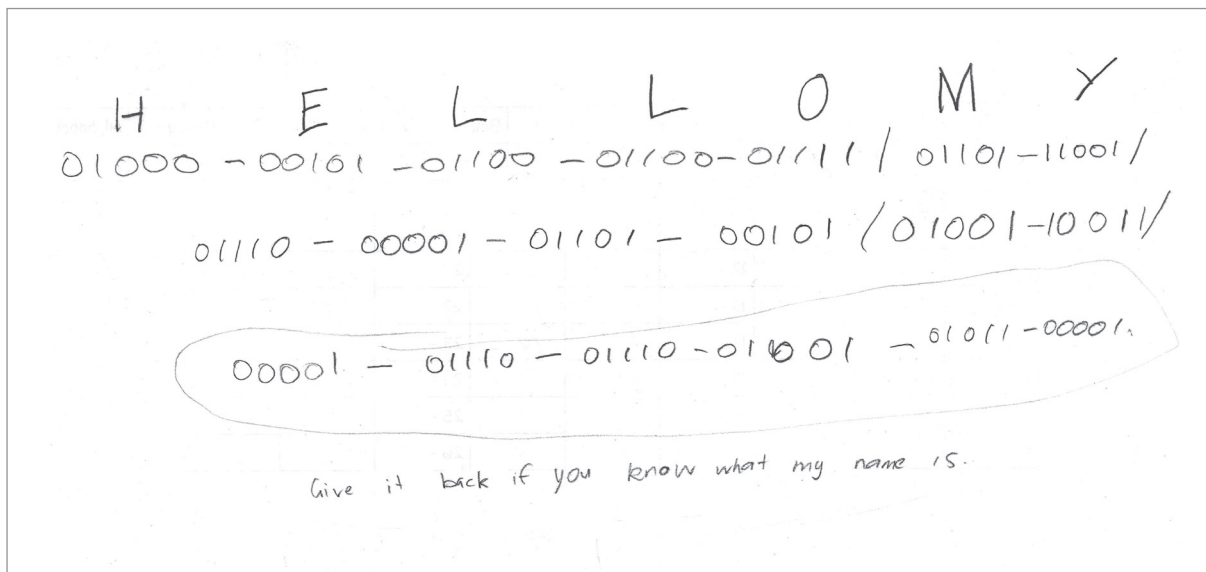 H E L L O M Y
01000 - 00101 - 01100 - 01100 - 01111 / 01101 - 11001 /
01110 - 00001 - 01101 - 00101 / 01001 - 10011 /
00001 - 01110 - 01110 - 01001 - 01011 - 00001.
Give it back if you know what my name is.